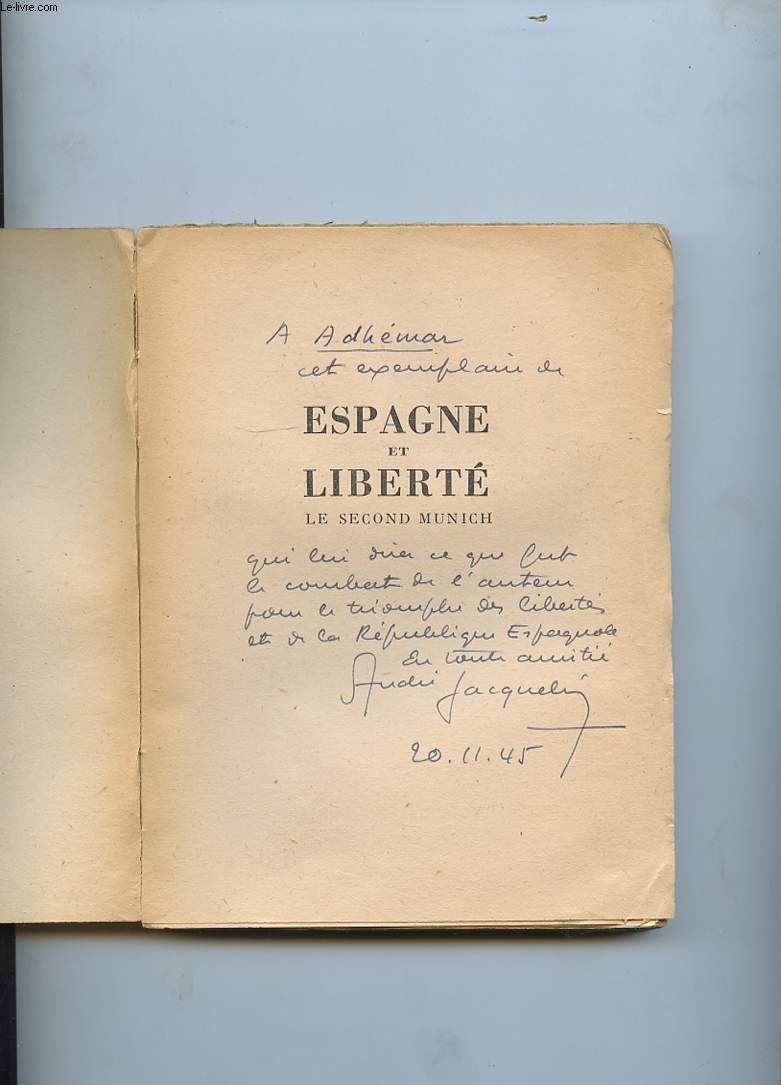 Le-livre.com
A Adhémar
cet exemplaire de
ESPAGNE
ET
LIBERTÉ
LE SECOND MUNICH
qui lui dira ce que fut
le combat de l'auteur
pour le triomphe des libertés
et de la République Espagnole
En toute amitié
André Jacquelin
20.11.45